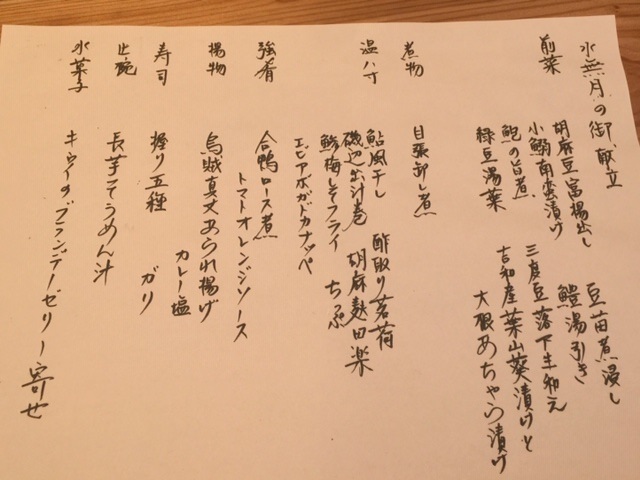 水無月の御献立
前菜
胡麻豆富揚出し 豆苗煮浸し
小鰯南蛮漬け 鱧湯引き
鮑の旨煮 三度豆落下生和え
緑豆湯葉 吉和産葉山葵漬けと
大根あちゃら漬け
煮物 目張卸し煮
温八寸 鮎風干し 酢取り茗荷
磯辺出汁巻 胡麻麩田楽
鱚梅しそフライ ちっぷ
エビアボガドカナッペ
強肴 合鴨ロース煮
トマトオレンジソース
揚物 烏賊真丈あられ揚げ
カレー塩
寿司 握り五種 ガリ
止椀 長芋そうめん汁
水菓子 キウイのブランデーゼリー寄せ